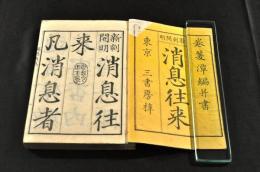 巻菱潭編并書
新刻開明
消息往来
東京 三書房梓
新刻開明
消息往
来
凡消息者